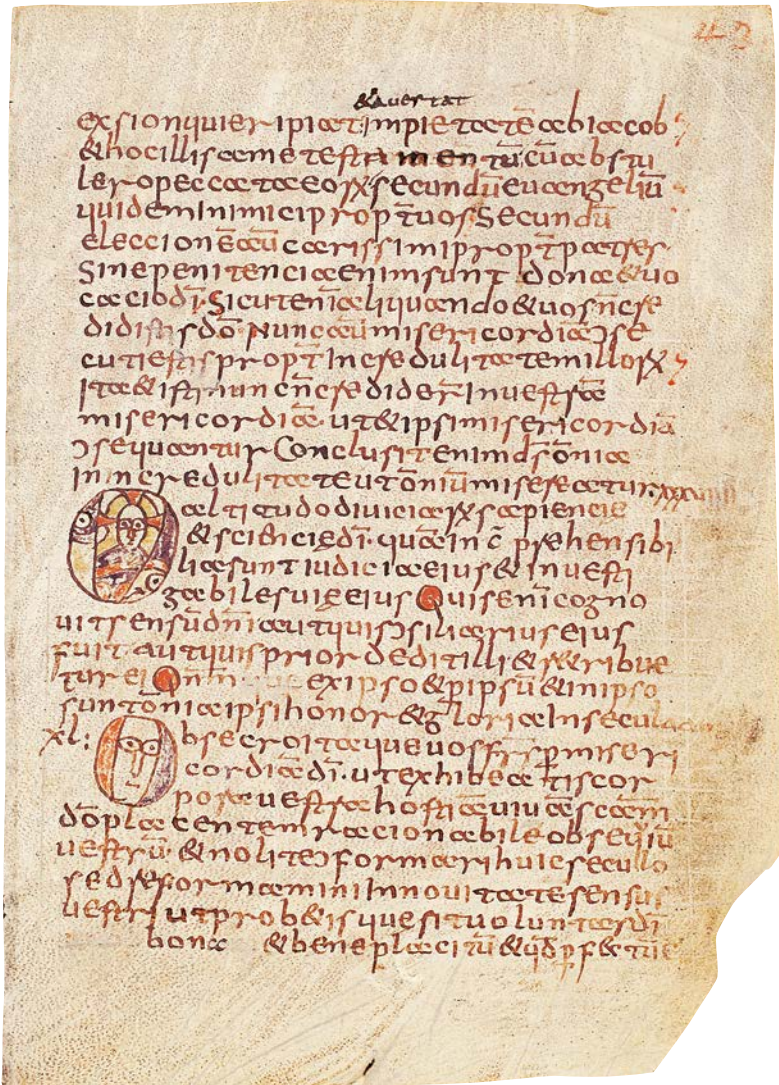 43
& auertat
ex sion qui eripiat impietatē ab iacob
& hoc illis a me testamentū cū abstu
lero peccata eoꝝ secundū euangeliū
quidem inimici propt̄ uos Secundū
eleccionē aū carissimi propt̄ patres
Sine penitencia enim sunt dona & uo
cacio dī. Sicut enī aliquando & uos n̄ cre
didistis dō Nunc aū misericordiā ɔse
cuti estis propt̄ Incredulitatem illoꝝ
ita & isti nunc n̄ credider̄ In uestrā
misericordiā. ut & ipsi misericordiā
ɔsequantur Conclusit enim ds̄ om̄ia
in incredulitate ut om̄iū misereatur.
O altitudo diuiciaꝝ sapiencie
& sciencię dī. quā inc̄prehensibi
lia sunt iudicia eius & inuesti
gabiles uię eius Quis enī cogno
uit sensū dn̄i aut quis ɔsiliarius eius
fuit. aut quis prior dedit illi & r&ribue
tur ei Qn̄m ex ipso & p̄ ipsū & in ipso
sunt om̄ia ipsi honor & gloria In secula
xl: Obsecro itaque uos frs̄ p̄ miseri
cordiā dī. ut exhibeatis cor
pora uestra hostiā uiuā scām
dō placentem racionabile obsequiū
uestrū. & nolite ɔformari huic seculo
sed reformamini In nouitate sensus
uestri ut prob&is que sit uoluntas dī
bona & bene placitū &